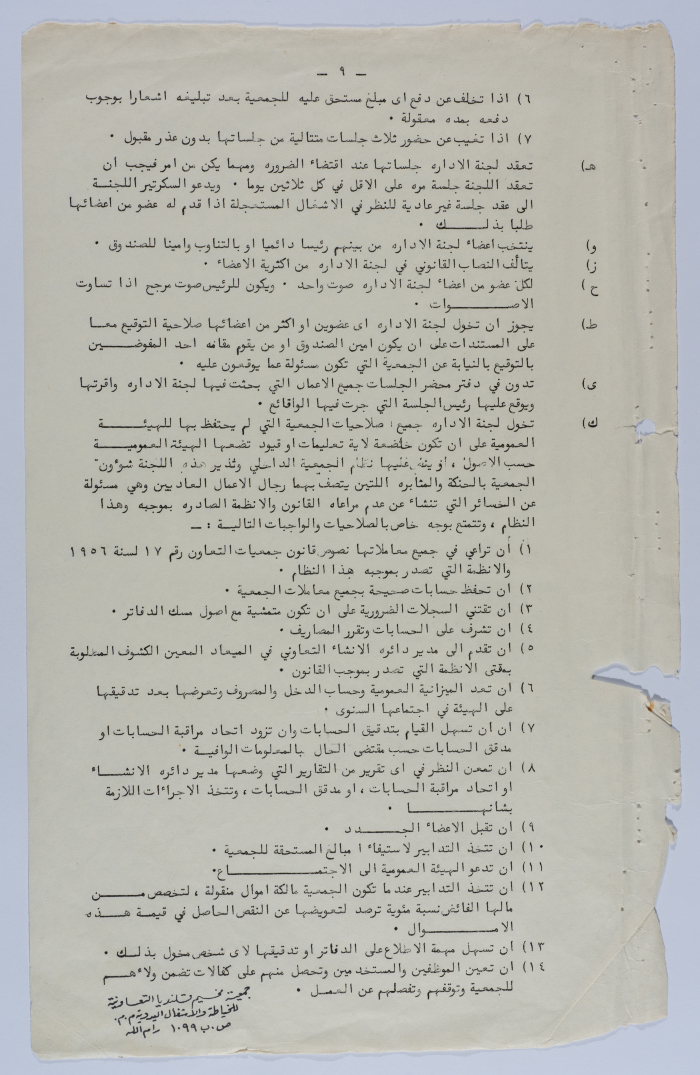 ــ ٩ ــ
٦) اذا تخلف عن دفع اى مبلغ مستحق عليه للجمعية بعد تبليغه اشعارا بوجوب
دفعه بمده معقولة ٠
٧) اذا تغيب عن حضور ثلاث جلسات متتالية من جلساتها بدون عذر مقبول ٠
هـ) تعقد لجنة الاداره جلساتها عند اقتضاء الضروره ومهما يكن من امر فيجب ان
تعقد اللجنة جلسة مره على الاقل في كل ثلاثين يوما ٠ ويدعو السكرتير اللجنــة
الى عقد جلسة غير عادية للنظر في الاشغال المستعجلة اذا قدم له عضو من اعضائها
طلبا بذلــــك ٠
و) ينتخب اعضاء لجنة الاداره من بينهم رئيسا دائميا او بالتناوب وامينا للصندوق ٠
ز) يتألف النصاب القانوني في لجنة الاداره من اكثرية الاعضاء ٠
ح) لكل عضو من اعضاء لجنة الاداره صوت واحد ٠ ويكون للرئيس صوت مرجح اذا تساوت
الاصــــوات ٠
ط) يجوز ان تخول لجنة الاداره اى عضوين او اكثر من اعضائها صلاحية التوقيع معــا
على المستندات على ان يكون امين الصندوق او من يقوم مقامه احد المفوضــــين
بالتوقيع بالنيابة عن الجمعية التي تكون مسئولة عما يوقعون عليه ٠
ى) تدون في دفتر محضر الجلسات جميع الاعمال التي بحثت فيها لجنة الاداره واقرتها
ويوقع عليها رئيس الجلسة التي جرت فيها الوقائع ٠
ك) تخول لجنة الاداره جميع صلاحيات الجمعية التي لم يحتفظ بها للهيئــــة
العمومية على ان تكون خاضعة لاية تعليمات او قيود تضعها الهيئة العموميــــة
حسب الاصول ، او ينص عليها نظام الجمعية الداخلي وتدير هذه اللجنة شوؤن
الجمعية بالحنكة والمثابره اللتين يتصف بهما رجال الاعمال العاديين وهي مسئولة
عن الخسائر التي تنشاء عن عدم مراعاه القانون والانظمة الصادره بموجبه وهذا
النظام ، وتتمتع بوجه خاص بالصلاحيات والواجبات التاليــة : ــ
١) أن تراعي في جميع معاملاتها نصوص قانون جمعيات التعاون رقم ١٧ لسنة ١٩٥٦
والانظمة التي تصدر بموجبه هذا النظام ٠
٢) ان تحفظ حسابات صحيحة بجميع معاملات الجمعية ٠
٣) ان تقتني السجلات الضرورية على ان تكون متمشية مع اصول مسك الدفاتر ٠
٤) ان تشرف على الحسابات وتقرر المصاريف ٠
٥) ان تقدم الى مدير دائره الانشاء التعاوني في الميعاد المعين الكشوف المطلوبة
بمقتى الانظمة التي تصدر بموجب القانون ٠
٦) ان تعد الميزانية العمومية وحساب الدخل والمصروف وتعرضها بعد تدقيقها
على الهيئة في اجتماعها السنوى ٠
٧) ان ان تسهل القيام بتدقيق الحسابات وان تزود اتحاد مراقبة الحسابات او
مدقق الحسابات حسب مقتضى الحال بالمعلومات الوافيــة ٠
٨) ان تمعن النظر في اى تقرير من التقارير التي وضعها مدير دائره الانشــــاء
او اتحاد مراقبة الحسابات ، او مدقق الحسابات ، وتتخذ الاجراءات اللازمة
بشانهــــا ٠
٩) ان تقبل الاعضاء الجــــدد ٠
١٠) ان تتخذ التدابير لاستيفاء المبالغ المستحقة للجمعية ٠
١١) ان تدعو الهيئة العمومية الى الاجتمــــاع٠
١٢) ان تتخذ التدابير عندما تكون الجمعية مالكة اموال منقولة ، لتخصص مــــن
مالها الفائض نسبة مئوية ترصد لتعويضها عن النقص الحاصل في قيمة هــــذه
الامــــوال ٠
١٣) ان تسهل مهمة الاطلاع على الدفاتر او تدقيقها لاى شخص مخول بذلـك ٠
١٤) ان تعين الموظفين والمستخدمين وتحصل منهم على كفالات تضمن ولاءهــــم
للجمعية وتوقفهم وتفصلهم عن العمــل ٠
جمعية مخيم قلنديا التعاونية
للخياطة والأشغال اليدوية م.م.
ص.ب ١٠٩٩ رام الله